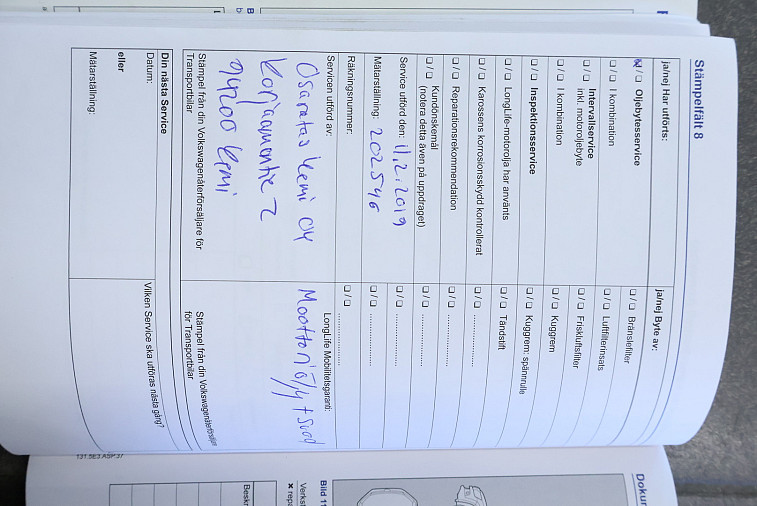 Stämpelfält 8
ja/nej Har utförts:
❏ / ❏ Oljebytesservice
❏ / ❏ I kombination
❏ / ❏ Intervallservice
inkl. motoroljebyte
❏ / ❏ I kombination
❏ / ❏ Inspektionsservice
❏ / ❏ LongLife-motorolja har använts
❏ / ❏ Karossens korrosionsskydd kontrollerat
❏ / ❏ Reparationsrekommendation
❏ / ❏ Kundönskemål
(notera detta även på uppdraget)
Service utförd den: 11.2.2019
Mätarställning: 202546
Räkningsnummer:
Servicen utförd av:
Osaratas Kemi OY
Korjaamontie 2
94200 Kemi
Stämpel från din Volkswagenåterförsäljare för
Transportbilar
ja/nej Byte av:
❏ / ❏ Bränslefilter
❏ / ❏ Luftfilterinsats
❏ / ❏ Friskluftsfilter
❏ / ❏ Kuggrem
❏ / ❏ Kuggrem: spännrulle
❏ / ❏ Tändstift
❏ / ❏ ..............
❏ / ❏ ..............
❏ / ❏ ..............
❏ / ❏ ..............
❏ / ❏ ..............
❏ / ❏ ..............
LongLife Mobilitetsgaranti:
Moottoriöljy +
Stämpel från din Volkswagenåterförsäljare
för Transportbilar
Din nästa Service
Datum:
eller
Mätarställning:
Vilken Service ska utföras nästa gång?
131.5E3.ASP.37
Bild 11